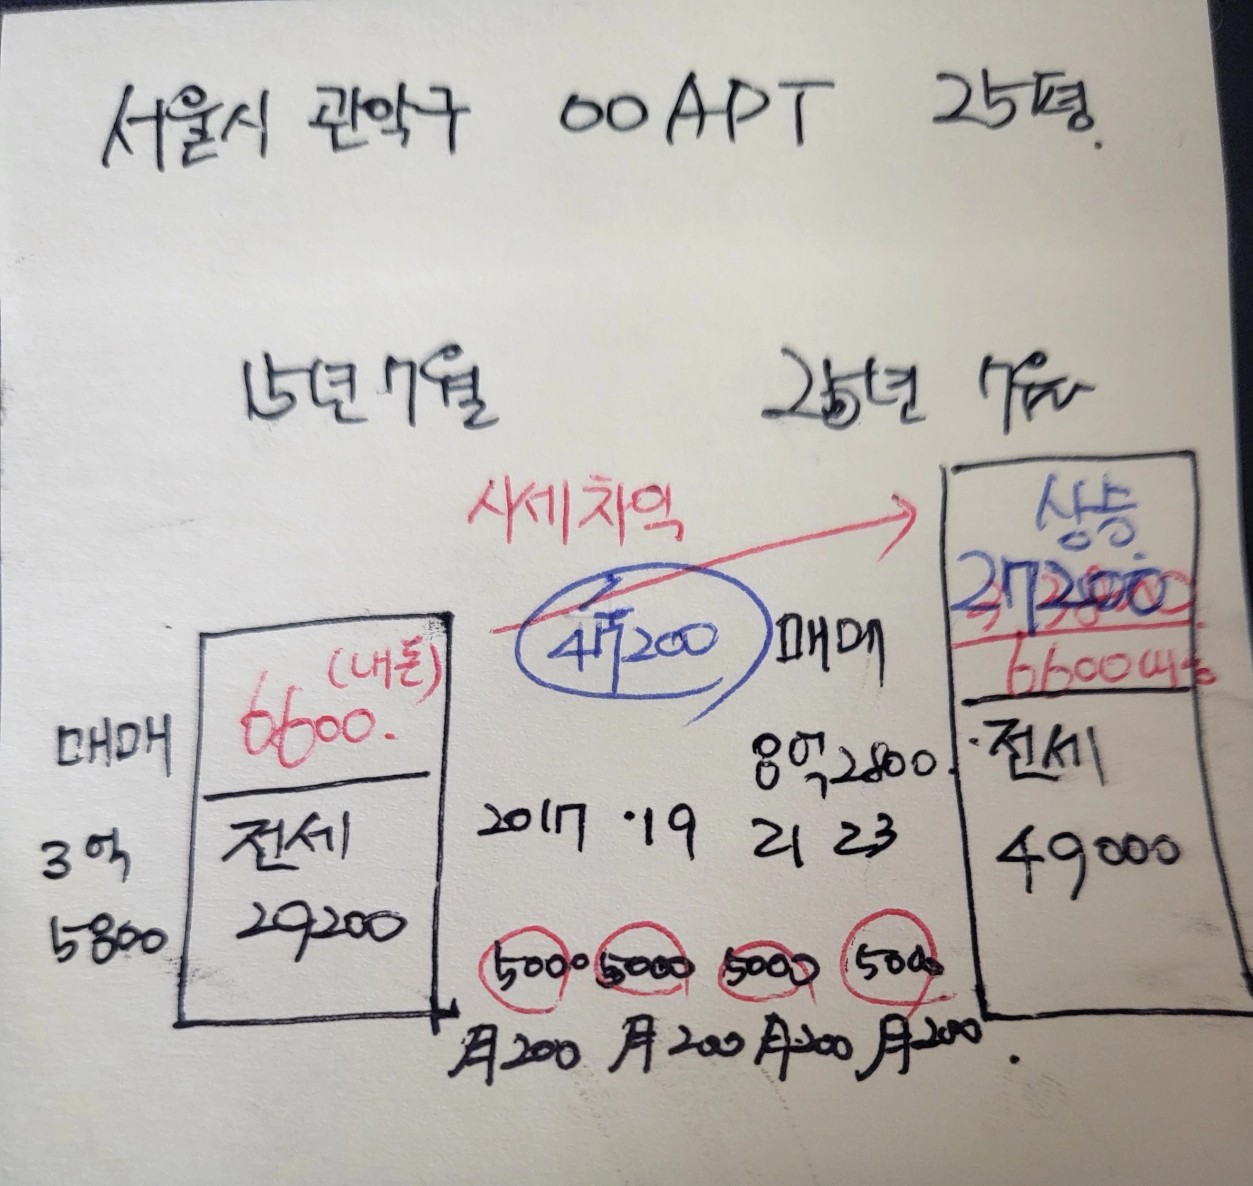 서울시 관악구 00APT 25평.
15년 7월
25년 7월
시세차익
47200
상승
6600
(내돈)
6600.
매매
3억
5800
전세
29200
매매
8억2800.
전세
49000
2017 · 19 21 23
5000 5000 5000 5000
月200 月200 月200 月200.